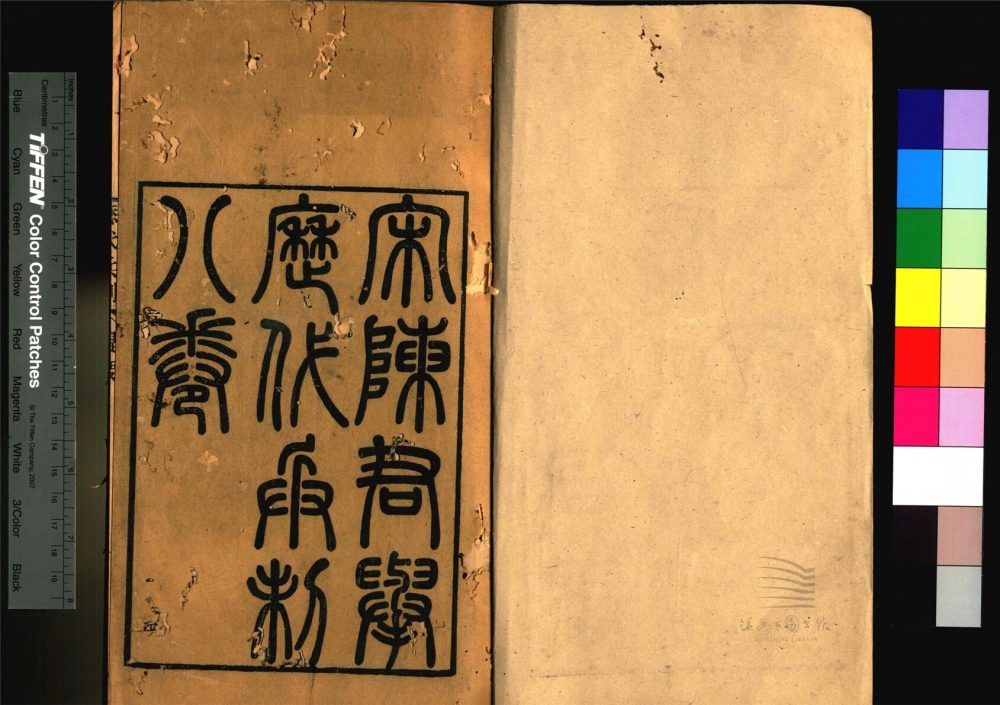 宋陳君舉
歷代兵制
八卷
Inches
Centimetres
TIFFEN Color Control Patches
© The Tiffen Company, 2007
Blue Cyan Green Yellow Red Magenta White 3/Color Black
1 2 3 4 5 6 7 8
1 2 3 4 5 6 7 8 9 10 11 12 13 14 15 16 17 18 19
温州市图书馆
WENZHOU LIBRARY